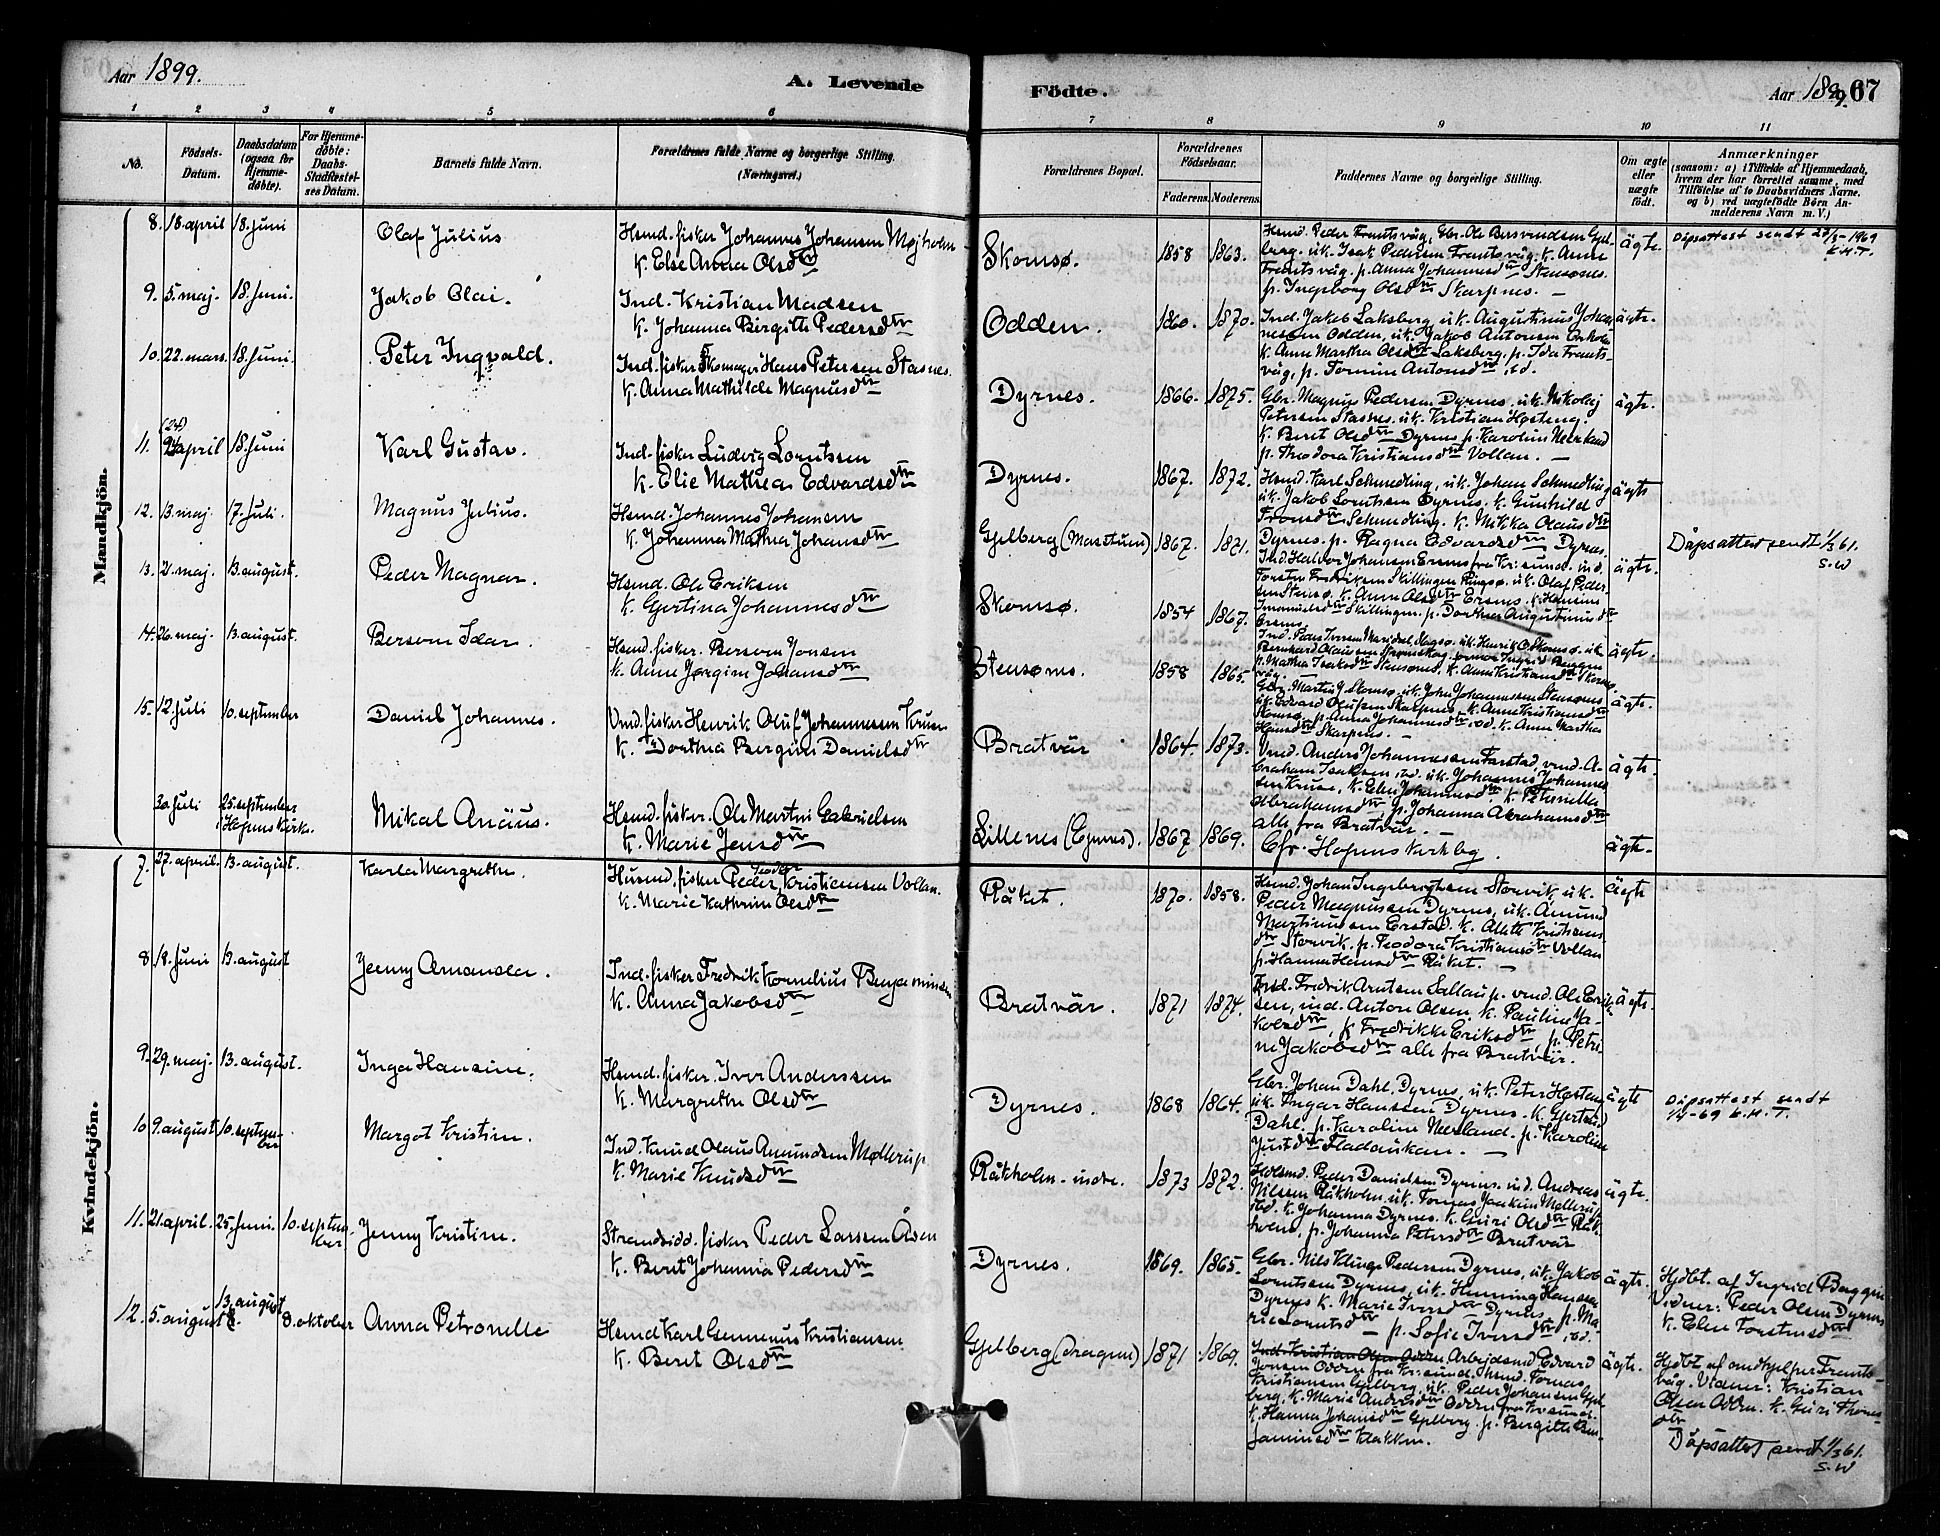 Aar 1899.
A. Levende
Födte.
Aar 1899.
67
1 2 3 4 5 6 7 8 9 10 11
No.
Födsels-
Datum.
Daabsdatum
(ogsaa for
Hjemme-
døbte).
For Hjemme-
døbte:
Daabs-
Stadfæstel-
ses Datum.
Barnets fulde Navn.
Forældrenes fulde Navne og borgerlige Stilling.
(Næringsvei.)
Forældrenes Bopæl.
Forældrenes
Födselsaar.
Faderens.
Moderens.
Faddernes Navne og borgerlige Stilling.
Om ægte
eller
uægte
født.
Anmærkninger
(saasom: a) i Tilfælde af Hjemmedaab,
hvem der har forrettet samme, med
Tilföielse af to Daabsvidners Navne,
og b) ved uægtefødte Börn An-
melderens Navn m. V.)
Mandkjön.
8. 18. april 18. juni Olaf Julius
Hsmd. fisker Johannes Johansen Møjholm
K. Else Anna Olsdtr
Skomsø. 1858 1863.
Hsmd. Peder Frantsvåg, Gbr. Ole
berg. u.k. Isak Pedersen Frantsvåg. K. Anne
Frantsvåg. p. Anna Johannesdtr Stensønes.
p. Ingeborg Olsdtr Skarpnes. —
ägte.
Dåpsattest sendt 1969
K.H.T.
9. 5. maj. 18. juni. Jakob Olai.
Ind. Kristian Madsen
K. Johanna Birgitte Pedersdtr
Odden. 1860. 1870.
Ind. Jakob Laksberg, u.k. Augustinus Johan-
nessen Odden, u.k. Jakob Antonsen
K. Anne Martha Olsdtr Laksberg. p. Ida Frants-
våg, p. Antonsdtr, ibd.
ägte.
10. 22. mars. 18. juni. Peter Ingvald.
Ind. fisker Skomager Hans Petersen Stasnes.
K. Anna Mathilde Magnusdtr
Dyrnes. 1866. 1875.
Gbr. Magnus Pedersen Dyrnes, u.k. Nikolaj
Petersen Stasnes. u.k. Kristian
K. Beret Olsdtr Dyrnes p. Karoline Neerland
p. Theodora Kristiansdtr Vollan. —
ägte.
(24)
11. april 18. juni Karl Gustav.
Ind. fisker Ludvig Lorntsen
K. Elie Mathea Edvardsdtr
Dyrnes. 1867. 1872.
Hsmd. Karl Schmedling, u.k. Johan Schmedling
u.k. Jakob Lorntsen Dyrnes. K. Gunhild
Schmedling. K. Mikka Olausdtr
Dyrnes. p. Ragna Edvardsdtr Dyrnes.
ägte
12. 13. maj. 17. juli. Magnus Julius.
Hsmd. Johannes Johansen
K. Johanna Mathea Johansdtr
Gjelberg (Masstuen) 1867. 1871.
Ind. Halvor Johansen fra Kr.sund. ind.
Torsten Fredriksen Skillingen Ringsø. u.k. Olaf Peder-
sen Stensø, K. Anna Olsdtr
Skillingen. p. Dorthea Augustinusdtr
ägte.
Dåpsattest sendt 1/3 61.
S.W
13. 21. maj. 13. august. Peder Magnar.
Hsmd. Ole Eriksen
K. Gjertina Johannesdtr
Skomsø. 1854 1867.
Ind. Peder Iversen u.k. Henrik O. Skomsø. u.k.
Bernhard Olausen
p. Mathea Isaksdtr Stensønes, K. Anne Kristiansdtr
ägte.
14. 26. maj. 13. august. Bersvom Idar.
Hsmd. fisker. Bersvom Jonsen
K. Anne Jørgine Johansdtr
Stensønes. 1858 1865.
Gbr. Martin J. Skomsø, u.k. John Johannessen Stensønes
u.k. Edvard Olufsen Skarpnes. K. Anne Kristiansdtr
Skomsø, p. Anna Johannesdtr, ibd. K. Anne Martha
Hansdtr Skarpnes. —
ägte.
15. 12. juli 10. september Daniel Johannes.
Vmd. fisker Henrik Oluf Johannessen Kruse
K. Dorthea Bergine Danielsdtr
Bratvär 1864. 1873.
Vmd. Anders Johannessen Farstad, vmd. A-
braham Isaksen, ibd. u.k. Johannes Johannes-
sen Kruse, K. Elen Johannesdtr, K. Petronella
Abrahamsdtr, p. Johanna Abrahamsdtr
alle fra Bratvär. —
ägte.
30. juli 25. september
i Hopens Kirke. Mikal Anäus.
Hsmd. fisker. Ole Martin Gabrielsen
K. Marie Jensdtr
Lillenes (Gjernes). 1867 1869.
Cfr. Hopens Kirkebog.
ägte.
Kvindekjön.
7. 27. april. 13. august. Karla Margrethe.
Husmd. fisker Peder Teodor Kristiansen Vollan.
K. Marie Kathrine Olsdtr
Råket. 1870. 1858.
Hsmd. Johan Ingebrigtsen Storvik, u.k.
Peder Magnussen Dyrnes, u.k. Amund
Martinusen Erstad. K. Alette Kristians-
dtr Storvik. p. Teodora Kristiansdtr Vollan
p. Hanna Hansdtr Råket. —
ägte
8 18. juni 13. august Jenny Amanda.
Ind. fisker Fredrik Kornelius Benjaminsen
K. Anna Jakobsdtr
Bratvär. 1871 1874.
Insd. Fredrik Arntsen Sallaup. vmd. Ole Erik-
sen, ind. Anton Olsen, K. Pauline Ja-
kobsdtr, p. Fredrikke Eriksdtr, p. Petri-
ne Jakobsdtr alle fra Bratvär.
ägte.
9. 29. maj. 13. august. Inga Hansine.
Hsmd. fisker. Iver Anderssen
K. Margrethe Olsdtr
Dyrnes. 1868 1864.
Gbr. Johan Dahl. Dyrnes, u.k. Peter
u.k. Ingar Hanssen Dyrnes. K. Gjertrud
Dahl. p. Karoline Neerland. p. Karoline
Justdtr —
ägte
Dåpsattest sendt
-69 K.H.T.
10 9. august 10. septem-
ber Margot Kristine.
Ind. Knud Olaus Amundsen Møllerup
K. Marie Knudsdtr
Råkholm-indre. 1873 1872.
Peder Danielsen Dyrnes. ind. Andreas
Nilssen Råkholm, u.k. Tomas Joakim Møllerup
ibd. K. Johanna Dyrnes. K. Guri Olsdtr Råk-
holm, p. Johanna Petersdtr Bratvär
ägte.
11. 21. april. 25. juni. 10. septem-
ber. Jenny Kristine.
Strandsidd. fisker Peder Larssen Åsen
K. Beret Johanna Pedersdtr
Dyrnes. 1869. 1865.
Gbr. Nils Klinge Pedersen Dyrnes, u.k. Jakob
Lorntsen Dyrnes, u.k. Henning Hanssen
Dyrnes K. Marie Iversdtr Dyrnes, p. Ma-
rie Lorntsdtr — p. Sofie Iversdtr, ibd.
ägte.
Hjdbt. af Ingrid Bugge
Vidner: Peder Olsen Dyrnes
K. Elen Torstensdtr
12. 5. august 13. august 8. oktober Anna Petronelle
Hsmd Karl Gennenus Kristiansen
K. Beret Olsdtr
Gjelberg (Dragen) 1871 1869.
Ind. Kristian Olsen Odden Arbejdsmd Edvard
Jonsen Odden fra Kr.sund. Hsmd. Tomas
Kristiansen Gjelberg, u.k. Peder Johansen Gjel-
berg, K. Marie Andersdtr Odden fra Kr.sund.
K. Hanna Johansdtr Gjelberg. p. Bergitte Ben-
jaminsdtr Klakken.
ägte.
Hjdbt. af omdhjelper Frants-
våg. Vidner: Kristian
Olsen Odden. K. Guri Thomes-
dtr
Dåpsattest sendt 1/3 61.
S.W